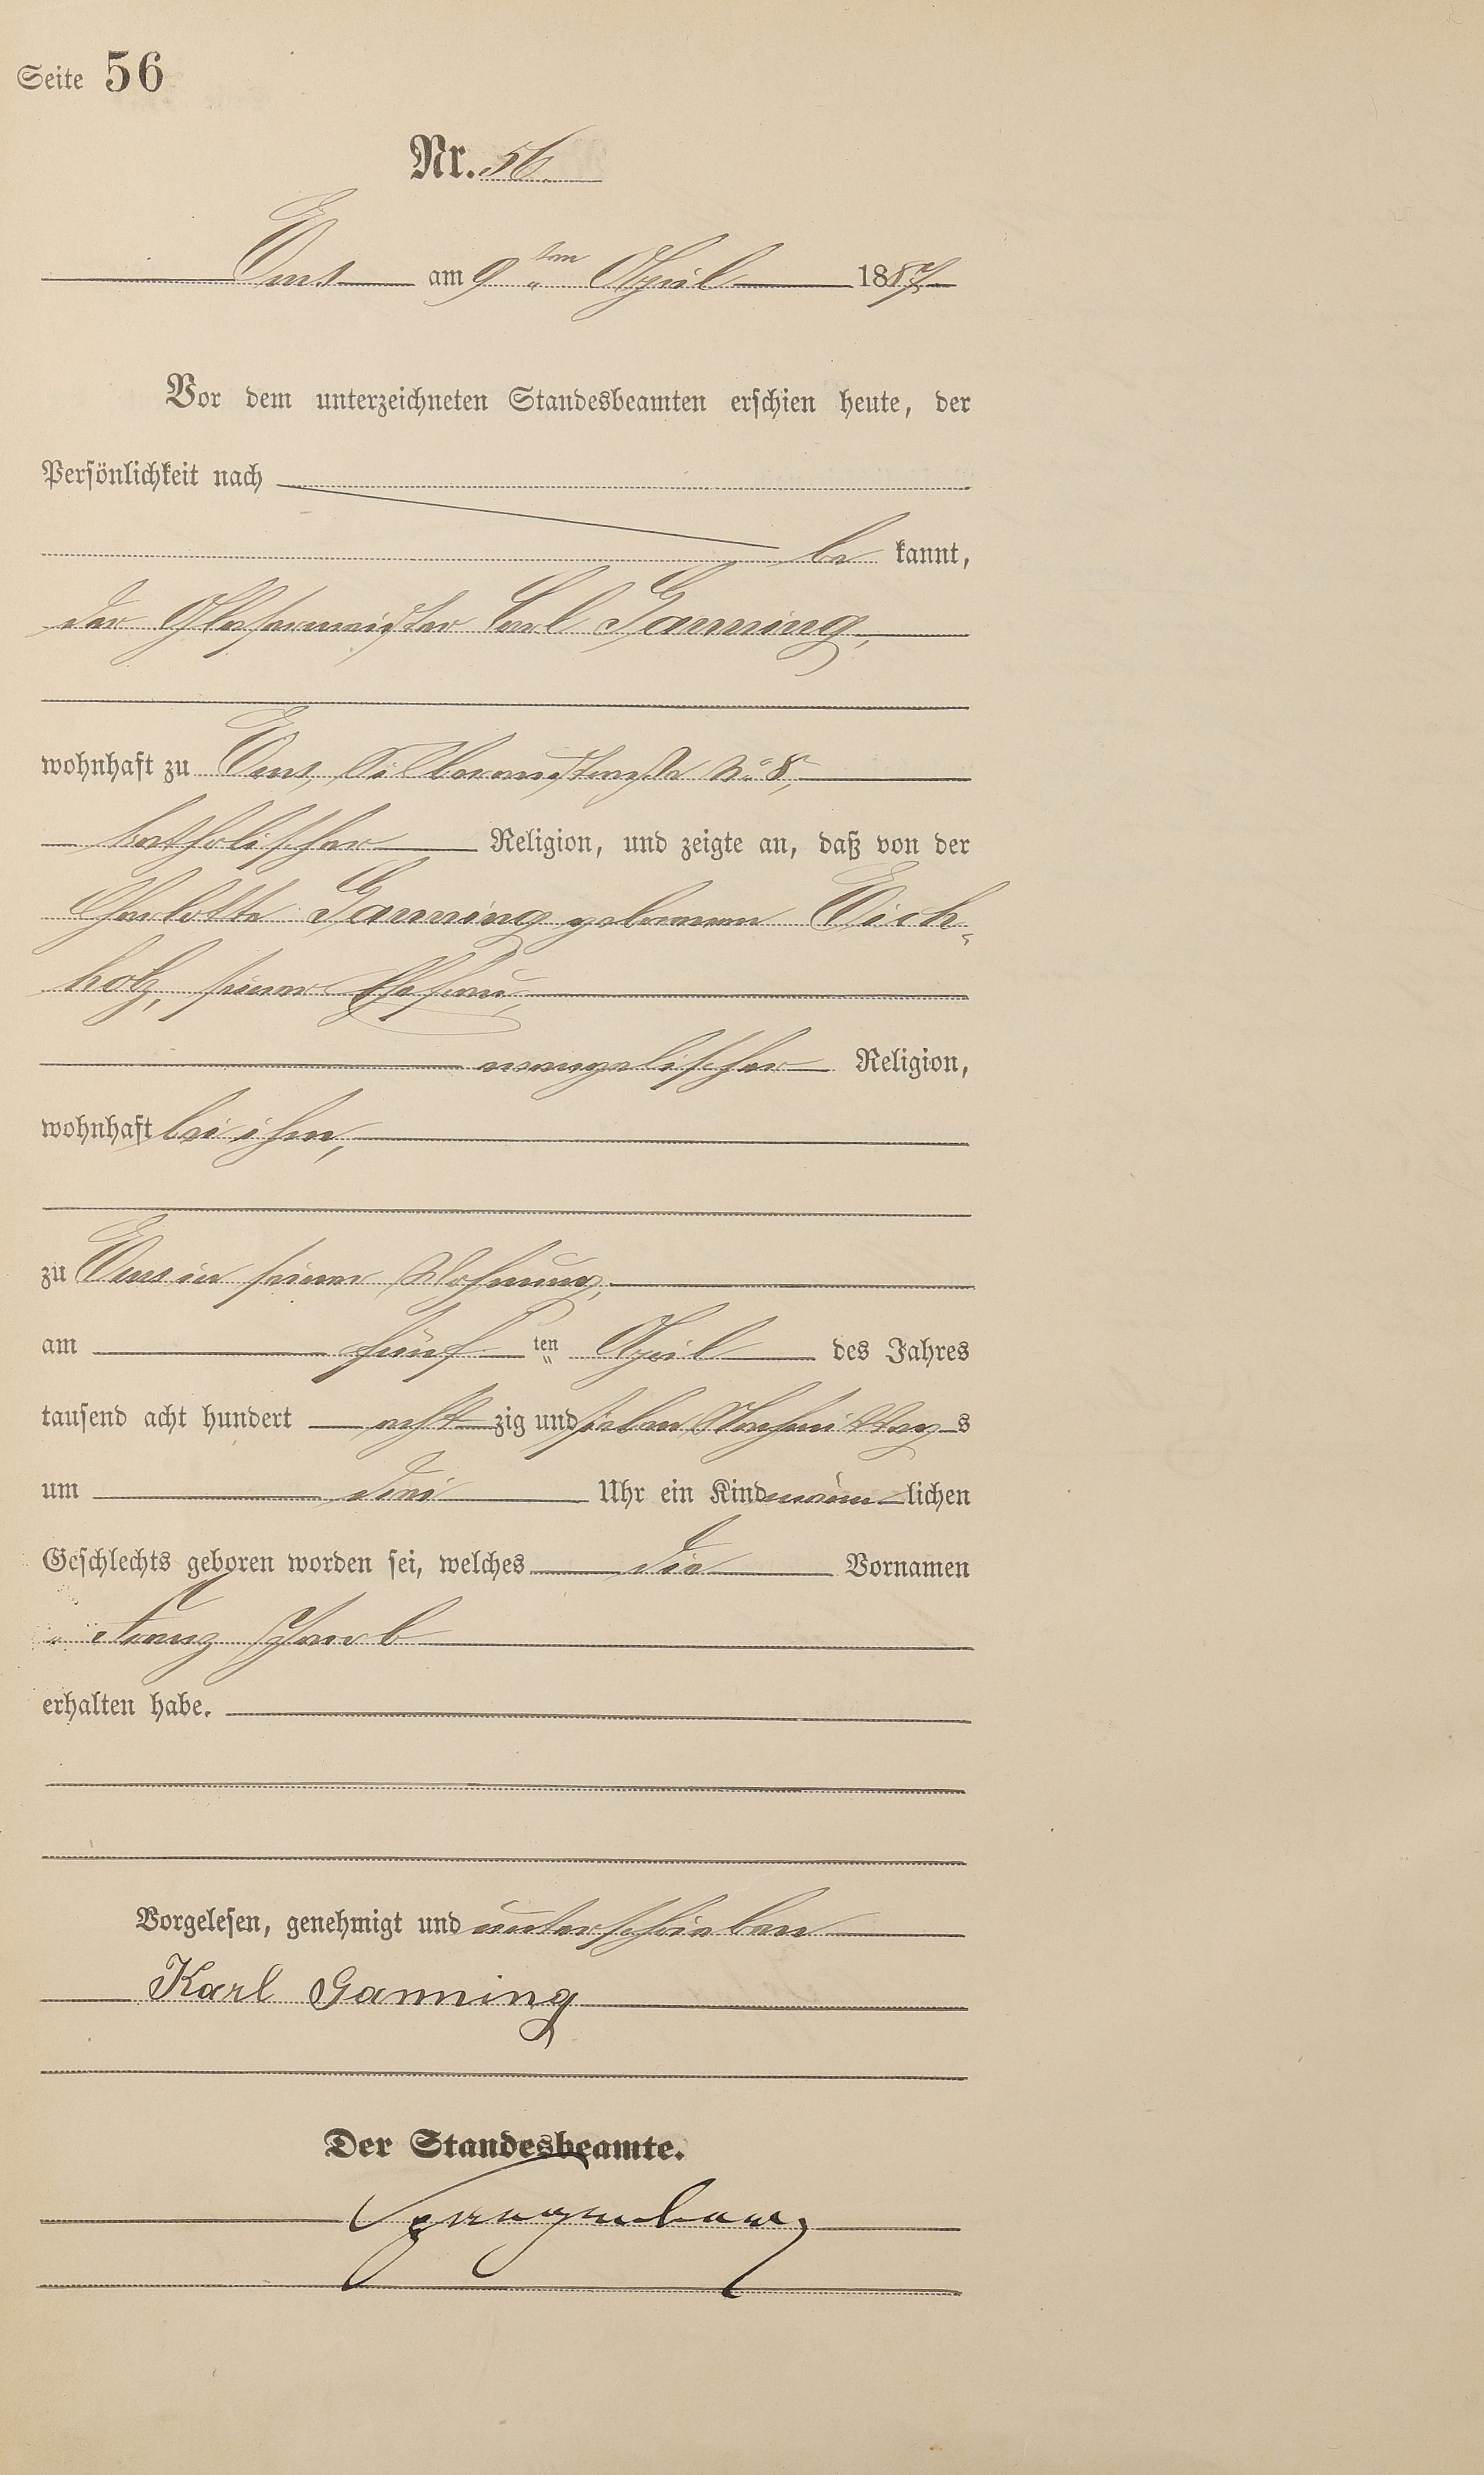 Seite 56
Nr. 56.
Ems am 9 ten April 1887
Vor dem unterzeichneten Standesbeamten erschien heute, der
Persönlichkeit nach
be kannt,
der Glasermeister Carl Ganning,
wohnhaft zu Ems, Silberaustraße No. 8,
katholischer Religion, und zeigte an, daß von der
Charlotte Ganning geborenen Eich-
holz, seiner Ehefrau,
evangelischer Religion,
wohnhaft bei ihm,
zu Ems in seiner Wohnung,
am fünf ten April des Jahres
tausend acht hundert acht zig und sieben Nachmittag s
um drei Uhr ein Kind männ lichen
Geschlechts geboren worden sei, welches die Vornamen
Franz
erhalten habe.
Vorgelesen, genehmigt und unterschrieben
Karl Ganning
Der Standesbeamte.